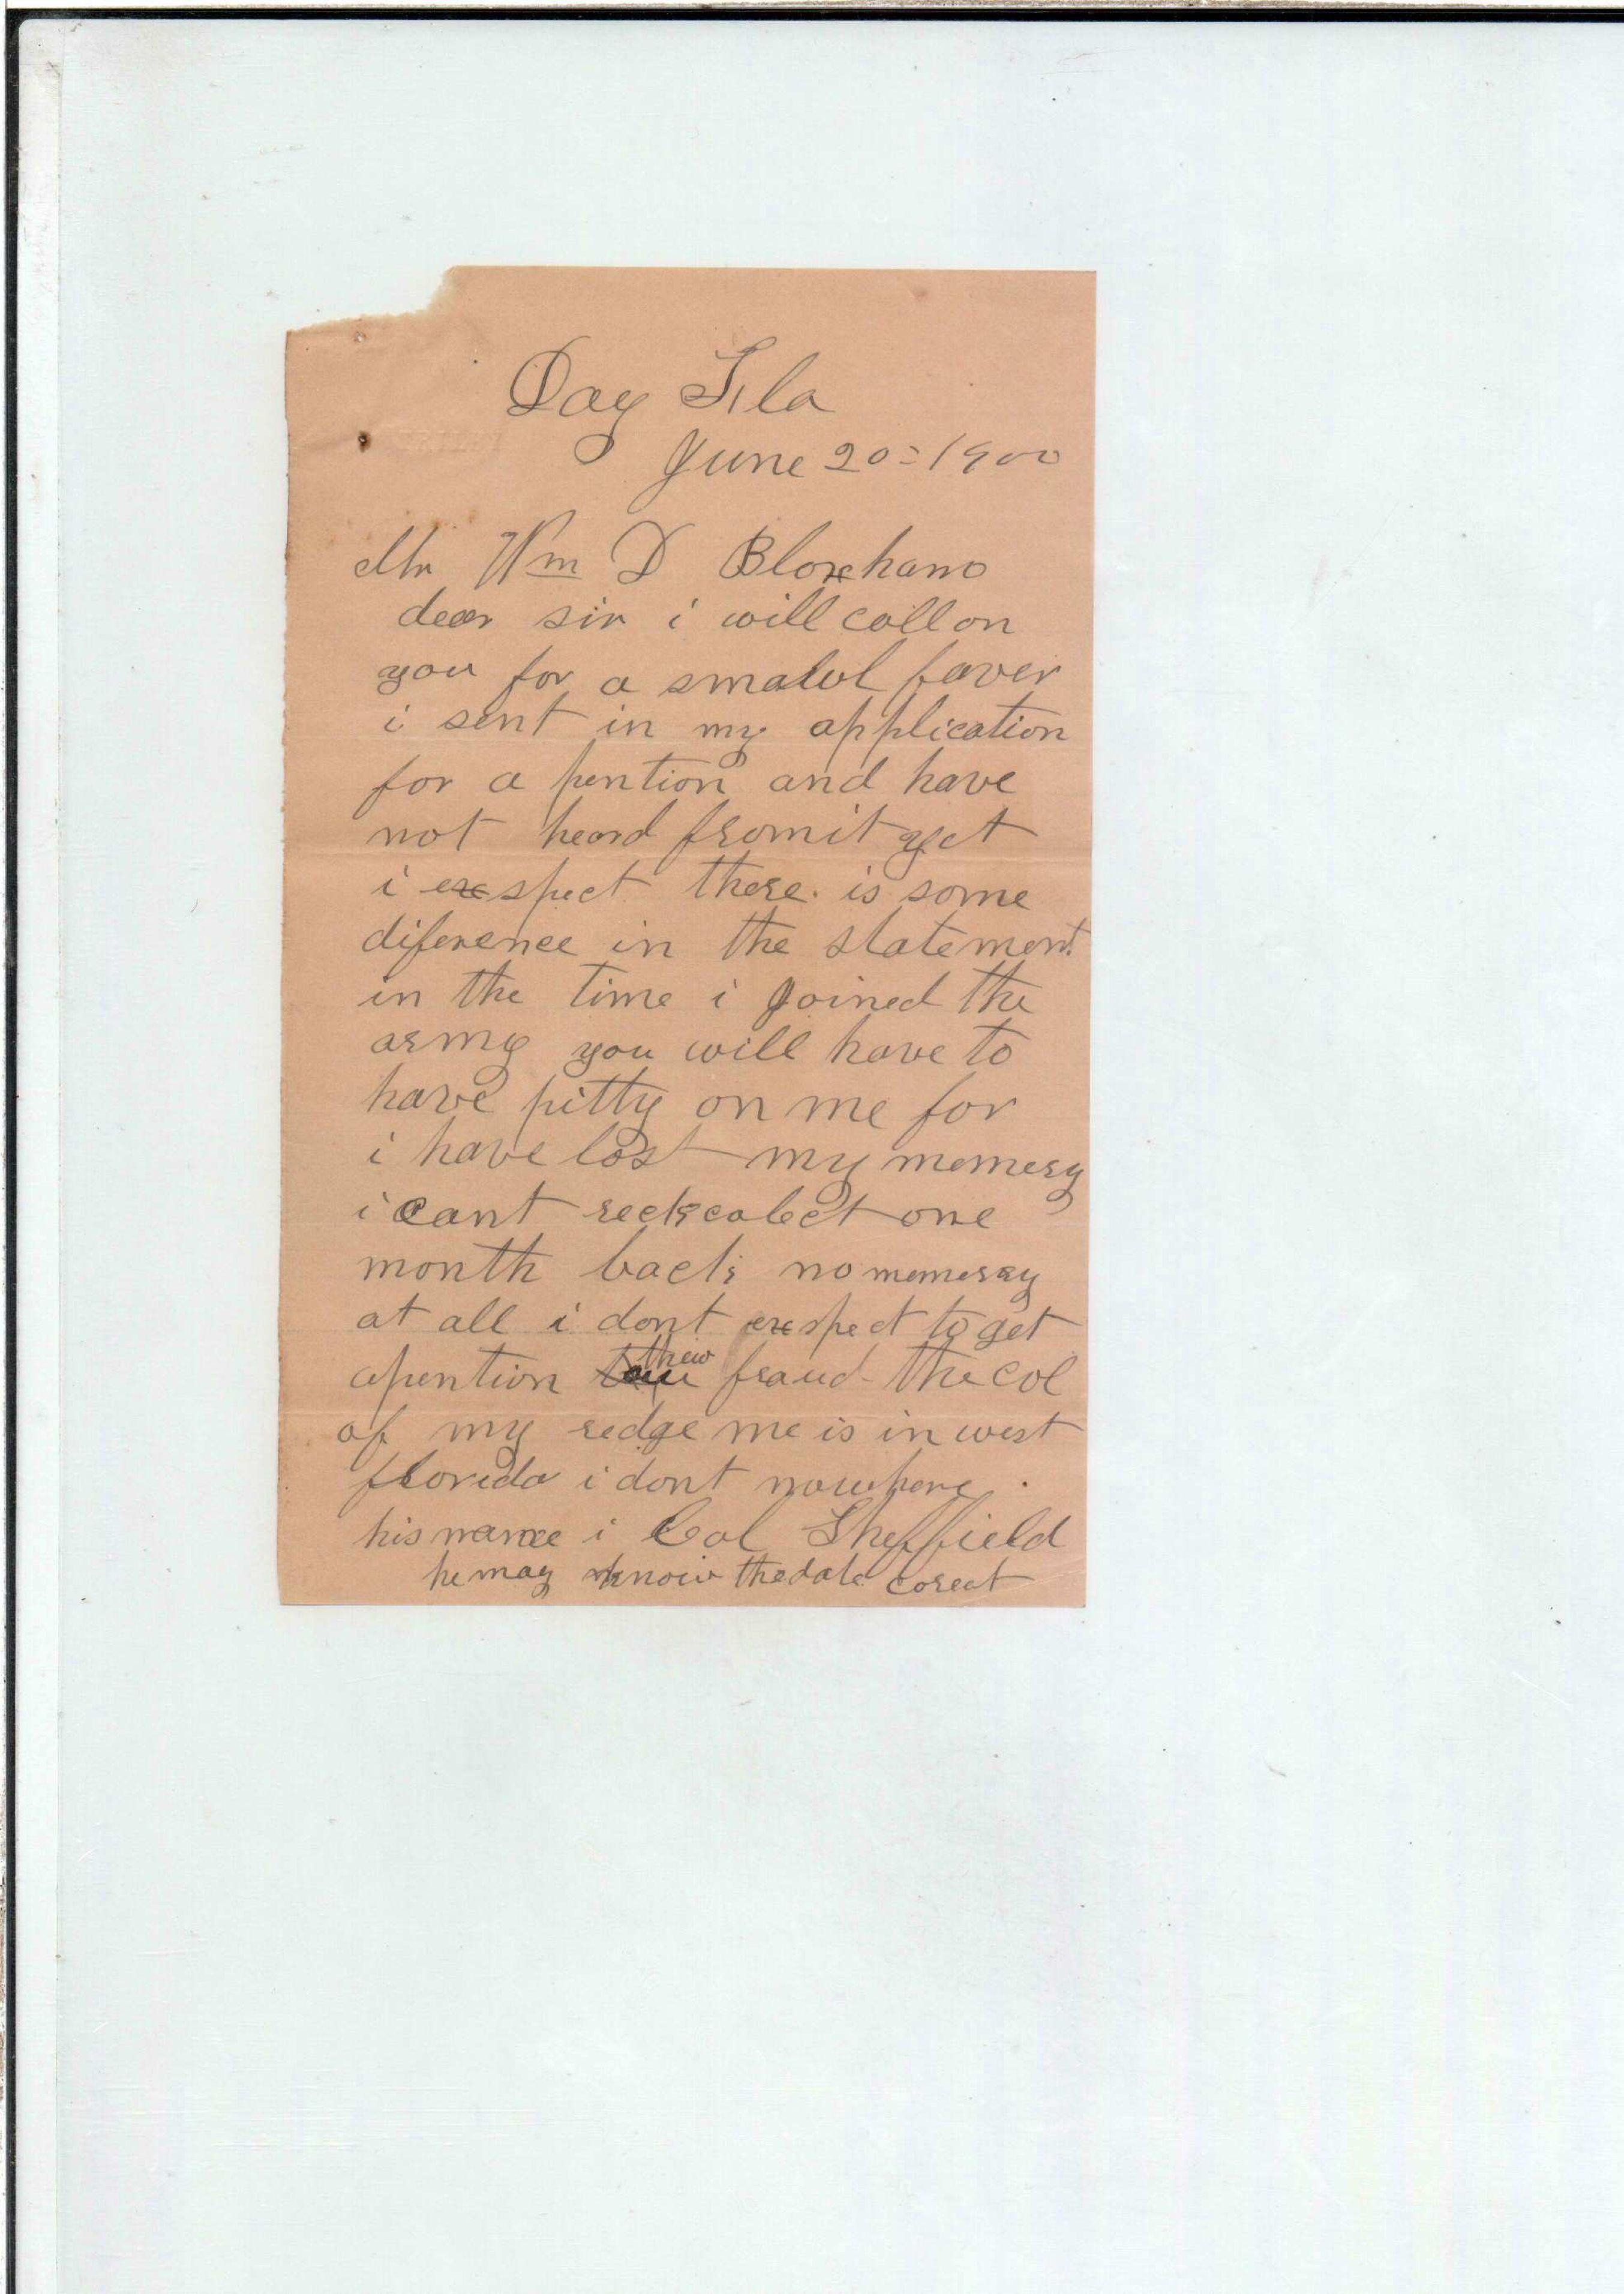 Day Fla
June 20=1900
Mr Wm D Bloxham
dear sir i will call on
you for a smalul faver
i sent in my application
for a pention and have
not heard fromit yet
i exspect there is some
diference in the statement
in the time i joined the
army you will have to
have pitty on me for
i have lost my memery
i cant reckcolect one
month back no memerry
at all i dont exspect to get
apention thew fraud the col
of my redge me is in west
florida i dont nowhere
his name i Col Sheffield
he may know thedate corect